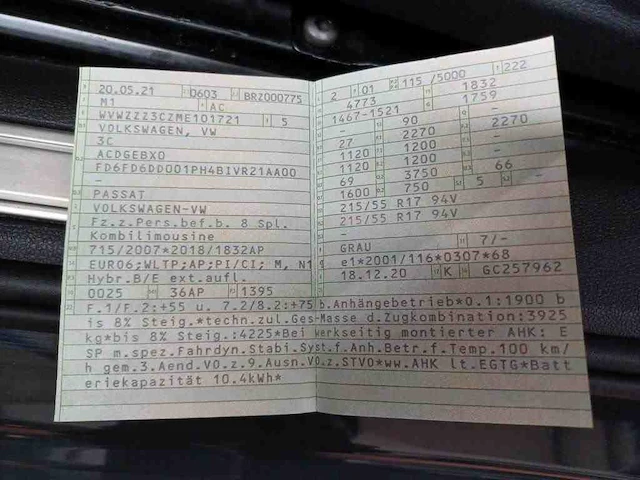 20.05.21 0603 BRZ000775
M1 AC
WVWZZZ3CZME101721 5
VOLKSWAGEN, VW
3C
ACDGEBX0
FD6FD6DD001PH4BIVR21AA00
-
PASSAT
VOLKSWAGEN-VW
Fz.z.Pers.bef.b. 8 Spl.
Kombilimousine
715/2007*2018/1832AP
EURO6;WLTP;AP;PI/CI; M, N1
Hybr.B/E ext.aufl.
0025 36AP 1395
2 01 115 /5000 222
4773 1832
1467-1521 1759
- 90 -
27 2270 2270
1120 1200 -
1120 1200 -
69 3750 66
1600 750 5 -
215/55 R17 94V
215/55 R17 94V
-
GRAU 7/-
e1*2001/116*0307*68
18.12.20 K GC257962
F.1/F.2:+55 u. 7.2/8.2:+75 b.Anhängebetrieb*0.1:1900 b
is 8% Steig.*techn.zul.Ges-Masse d.Zugkombination:3925
kg*bis 8% Steig.:4225*Bei werkseitig montierter AHK: E
SP m.spez.Fahrdyn.Stabi.Syst.f.Anh.Betr.f.Temp.100 km/
h gem.3.Aend.VO.z.9.Ausn.VO.z.STVO*ww.AHK lt.EGTG*Batt
eriekapazität 10.4kWh*